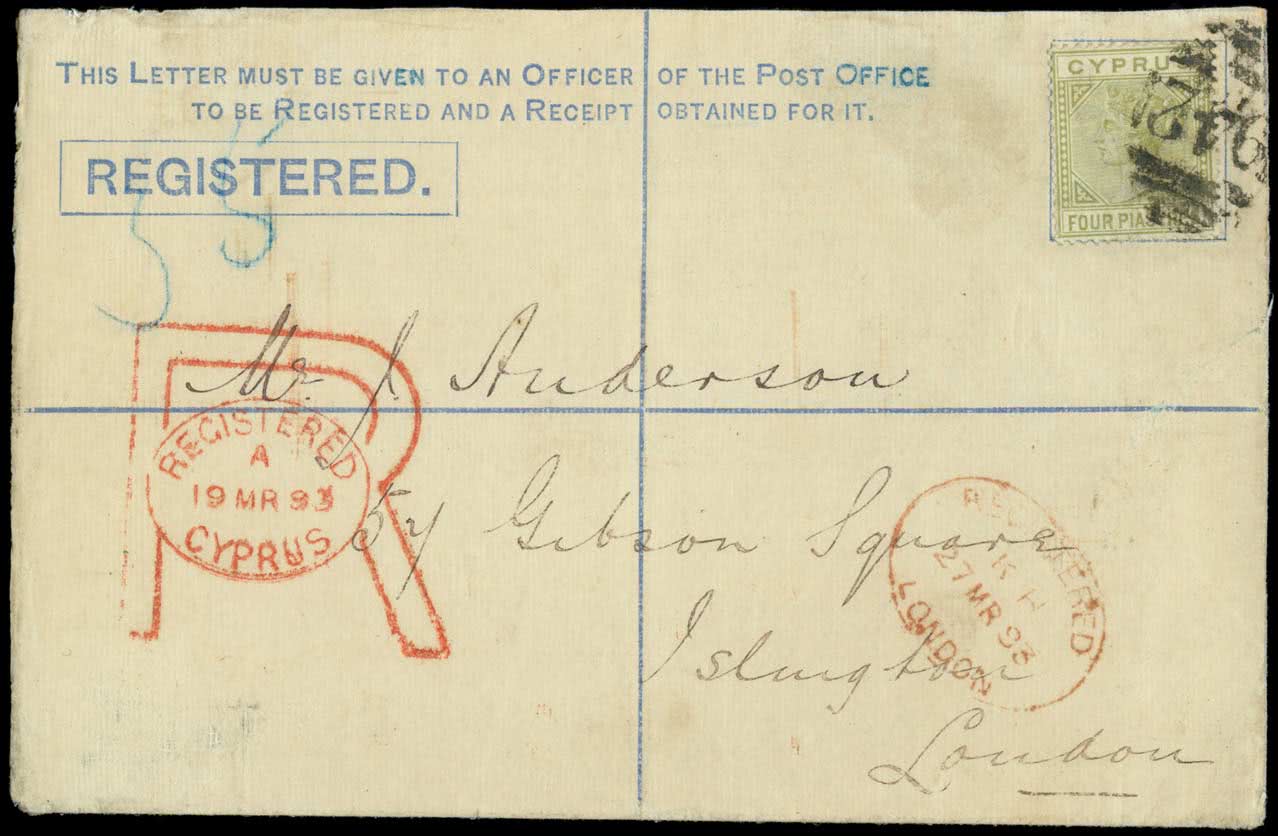 THIS LETTER MUST BE GIVEN TO AN OFFICER OF THE POST OFFICE
TO BE REGISTERED AND A RECEIPT OBTAINED FOR IT.
REGISTERED.
CYPRU
FOUR PIAS
942
55
R
REGISTERED
A
19 MR 93
CYPRUS
Mr. J. Anderson
57 Gibson Square
Islington
London
REGISTERED
27 MR 93
LONDON